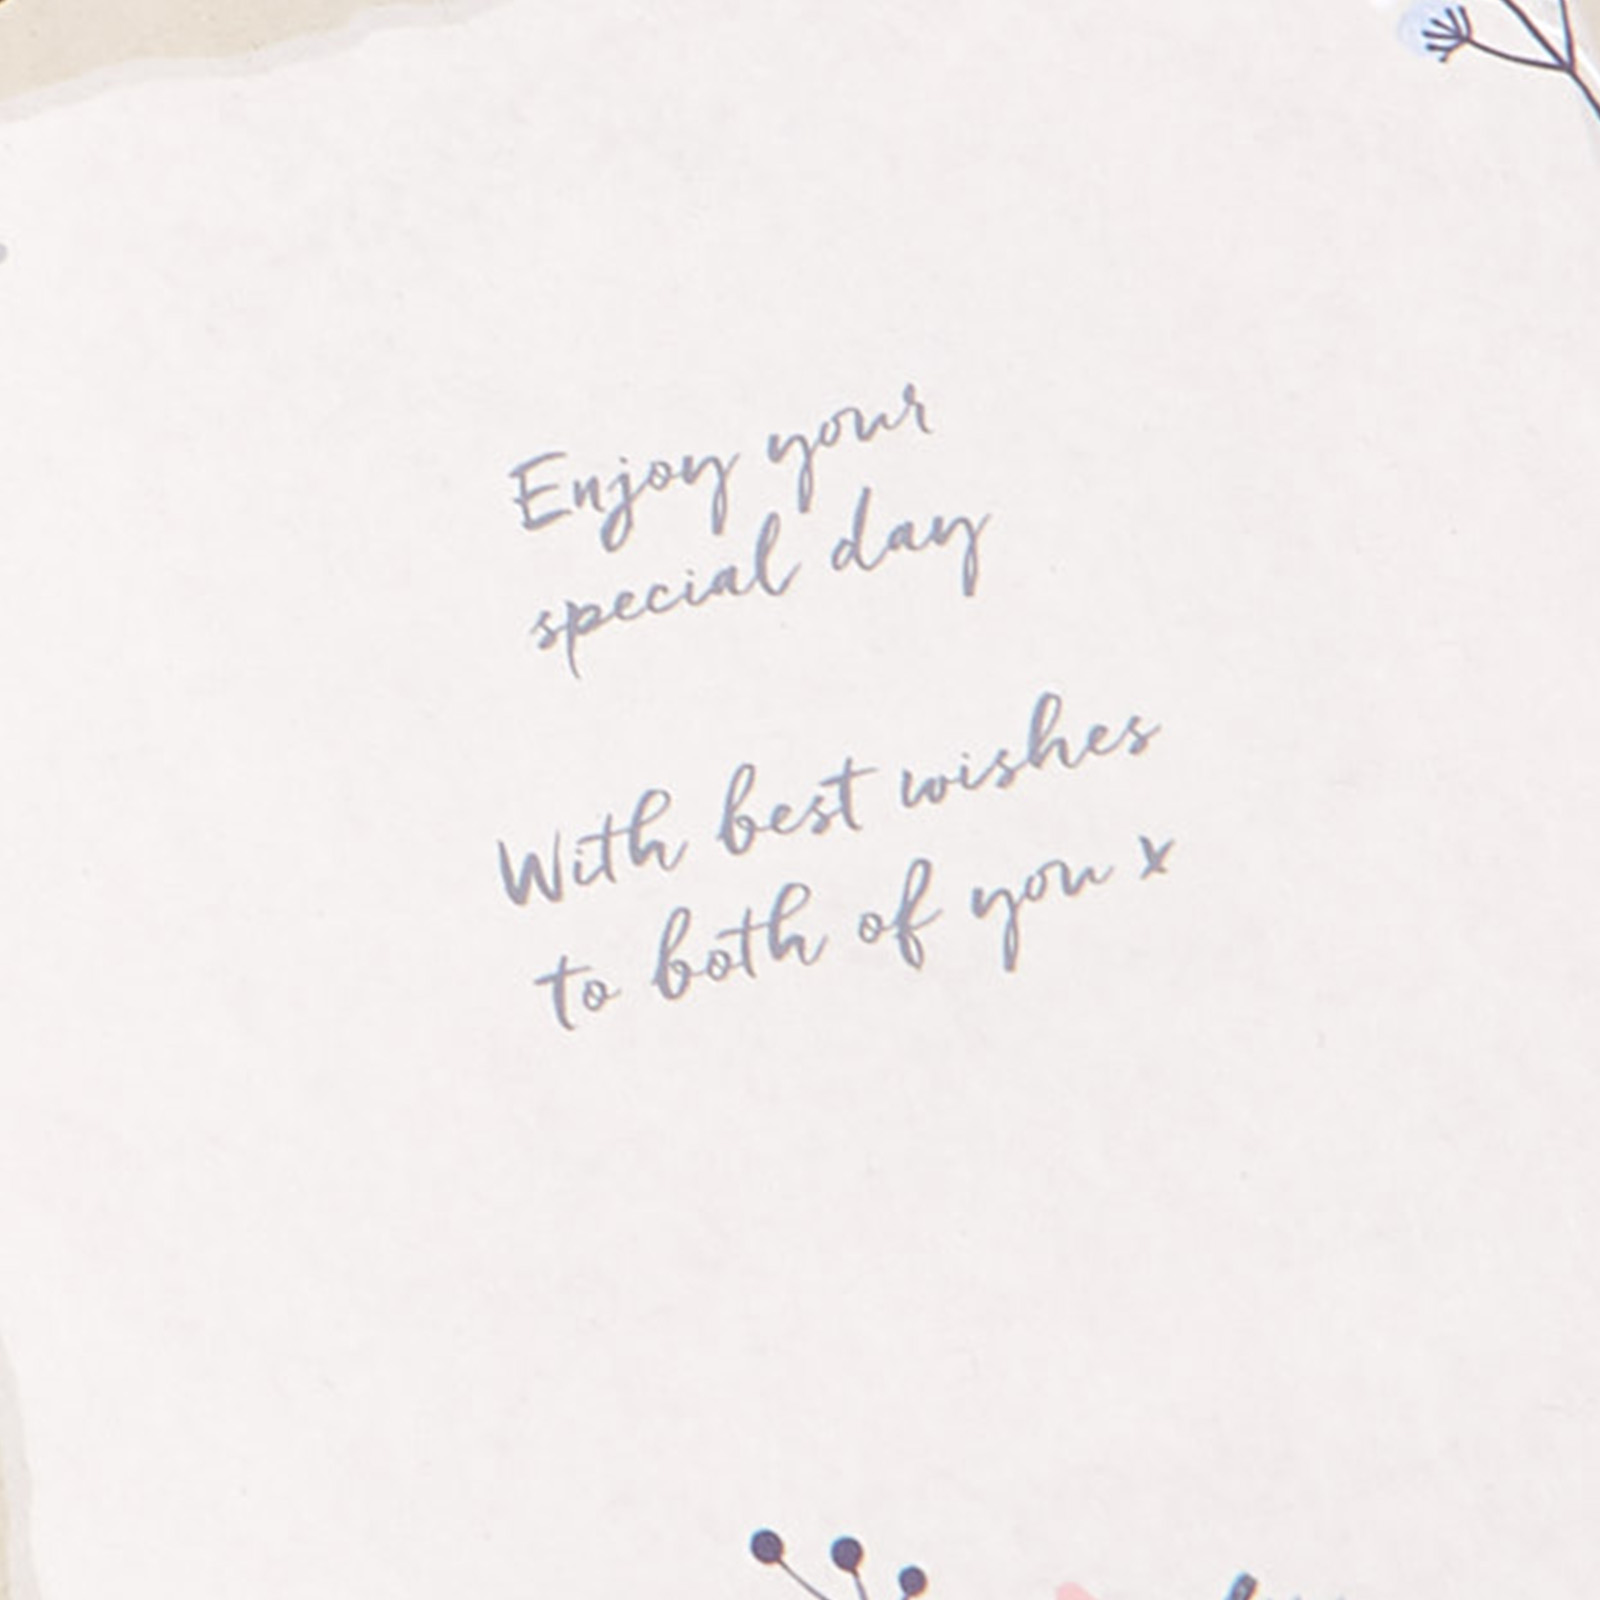 Enjoy your
special day
With best wishes
to both of you x